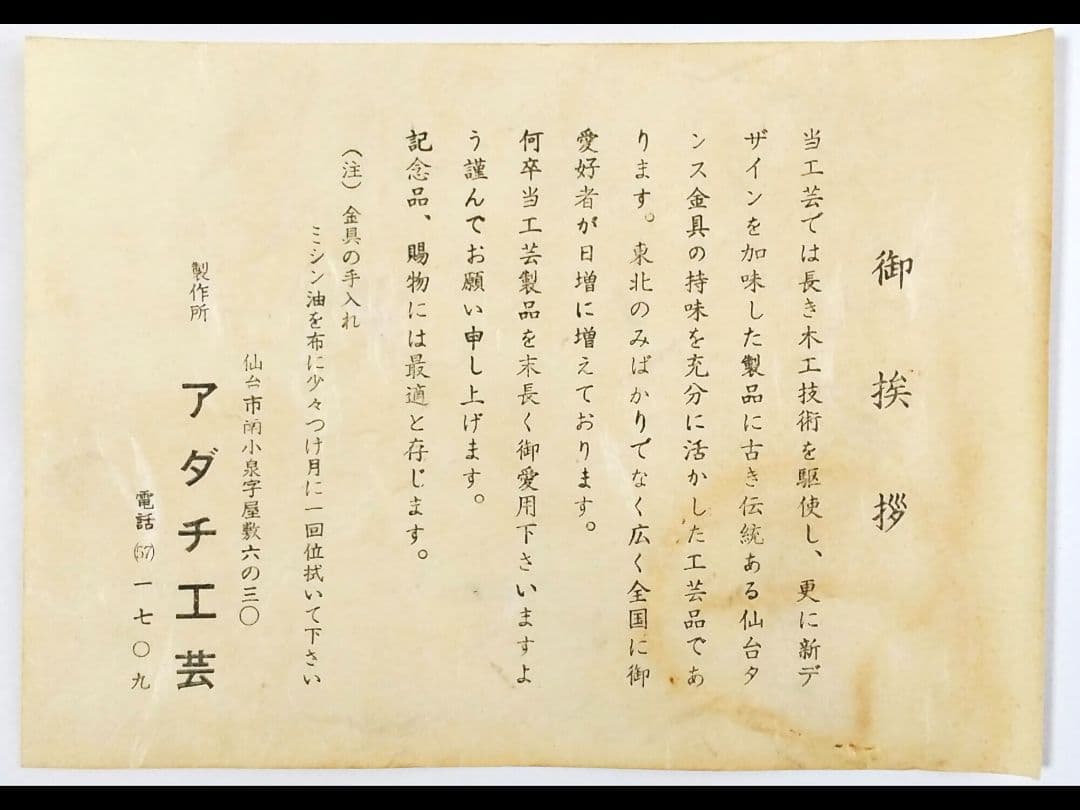 御挨拶
当工芸では長き木工技術を駆使し、更に新デ
ザインを加味した製品に古き伝統ある仙台タ
ンス金具の持味を充分に活かした工芸品であ
ります。東北のみばかりでなく広く全国に御
愛好者が日増に増えております。
何卒当工芸製品を末長く御愛用下さいますよ
う謹んでお願い申し上げます。
記念品、賜物には最適と存じます。
(注)金具の手入れ
ミシン油を布に少々つけ月に一回位拭いて下さい
仙台市南小泉字屋敷六の三〇
製作所 アダチ工芸
電話(57)一七〇九